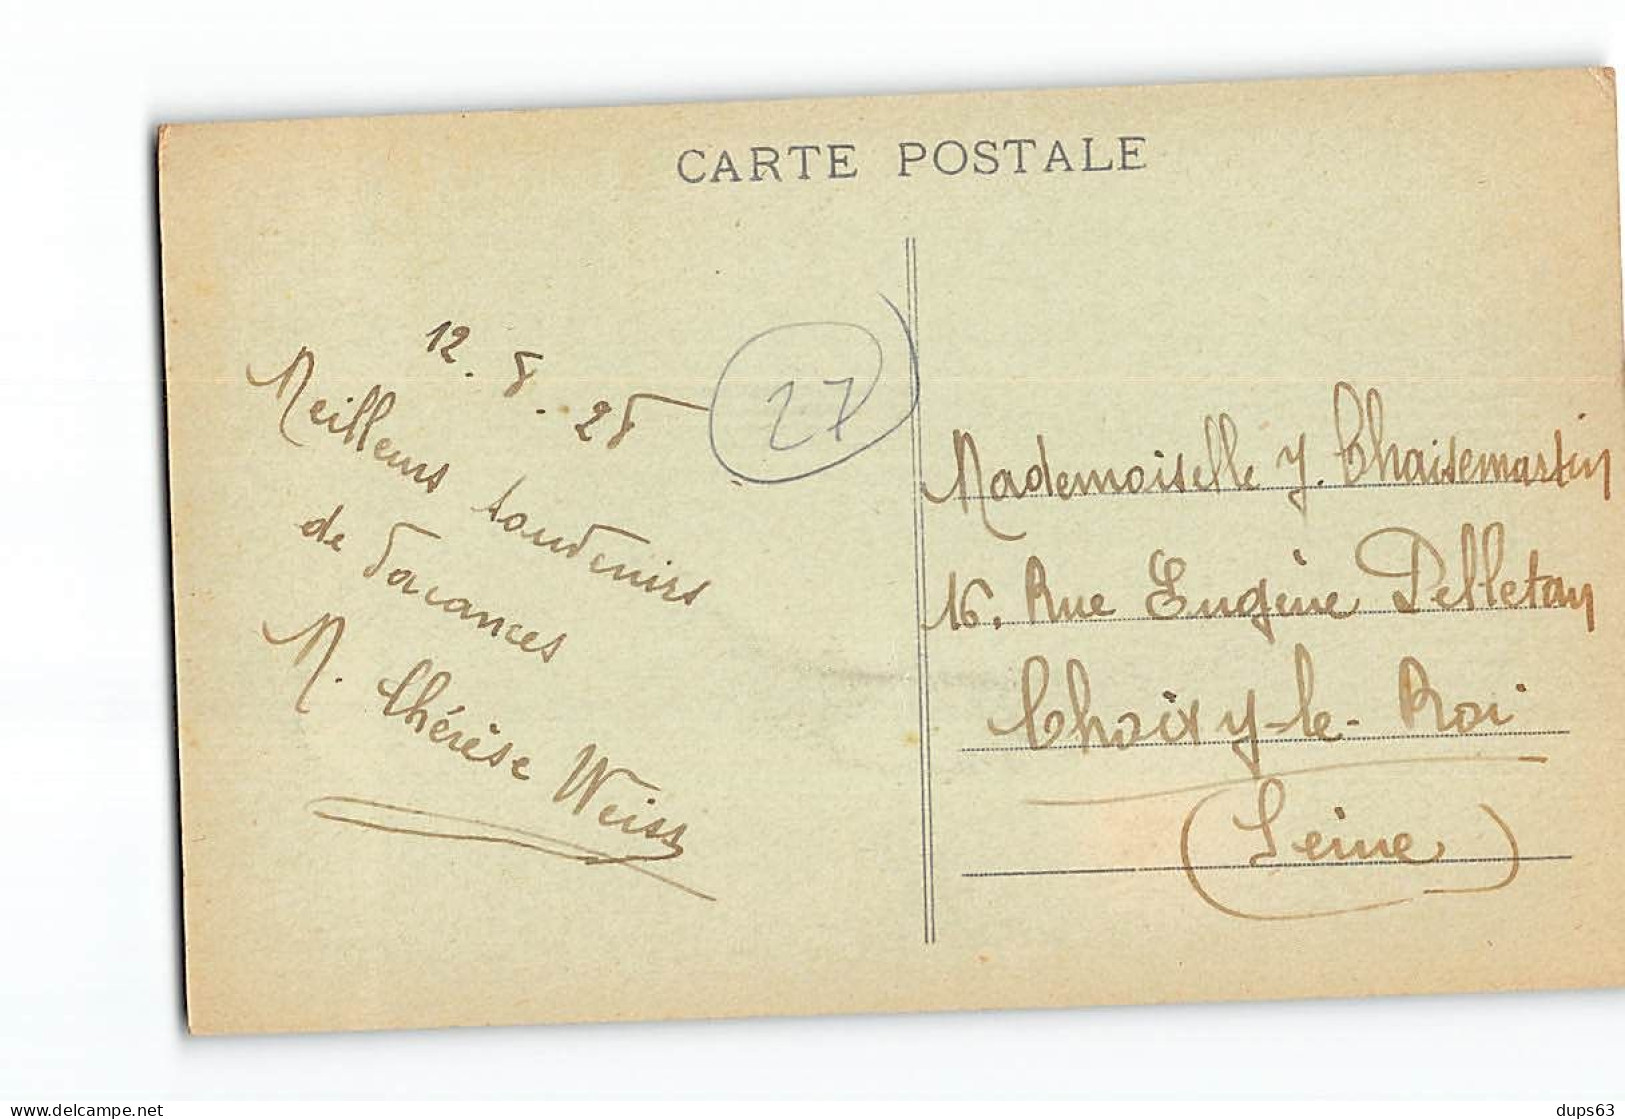 CARTE POSTALE
12. 8. 28
27
Meilleurs souvenirs
de vacances
M. Thérèse Weiss
Mademoiselle Y. Chaisemartin
16. Rue Eugène Pelletan
Choisy-le-Roi
(Seine)
www.delcampe.net
dups63